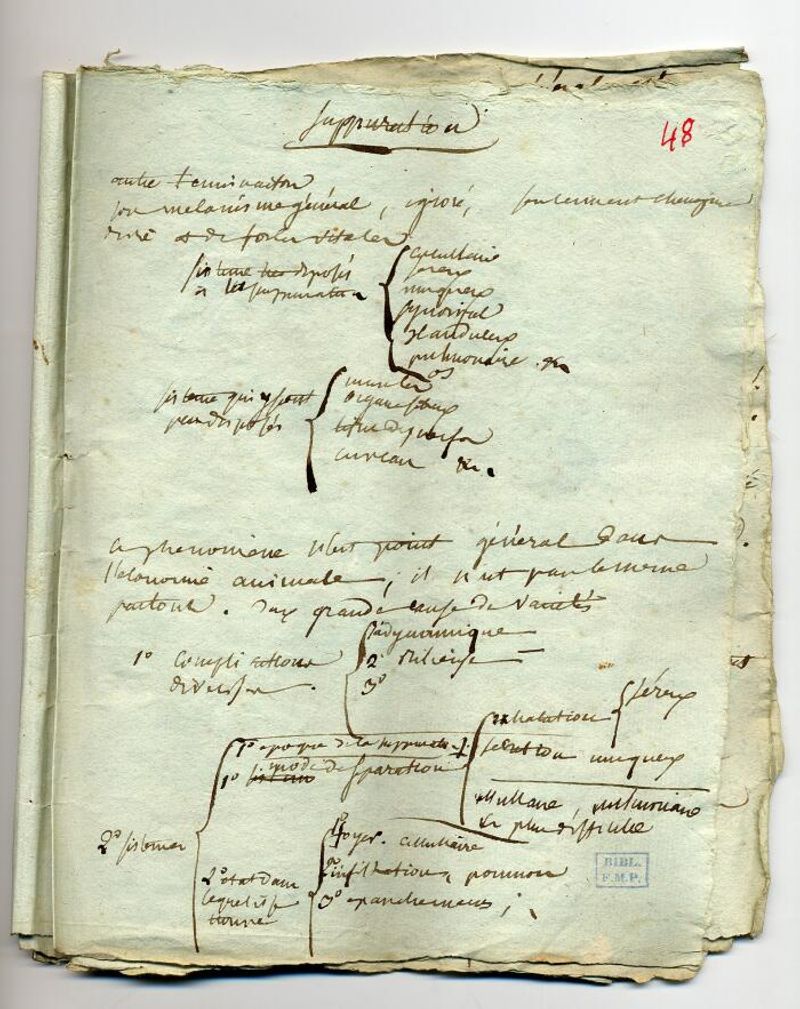 Suppuration
48
autre terminaison
son mécanisme général, ignoré, seulement changemen
des forces vitales
sisteme disposés
à la suppuration
cellulaire
sereux
muqueux
synovial
glanduleux
pulmonaire &c
sisteme qui y sont
peu disposés
muscles
os
organes
cerveau &c.
ce phenomene n'est point général dans
l'économie animale; il n'est pas le meme
partout. deux grande cause de variétés
1° complications
diverses.
1° adynamique
2° bilieuse
3°
2° sistemes
1° epoque de la suppurat.
1° mode de separation
exhalation
séreux
secretion muqueux
cellulaire, pulmonaire
&c plus difficile
2° etat dans
lequel il se
trouve
1° foyer. cellulaire
2° infiltrations, poumon
3° epanchements;
BIBL.
F.M.P.